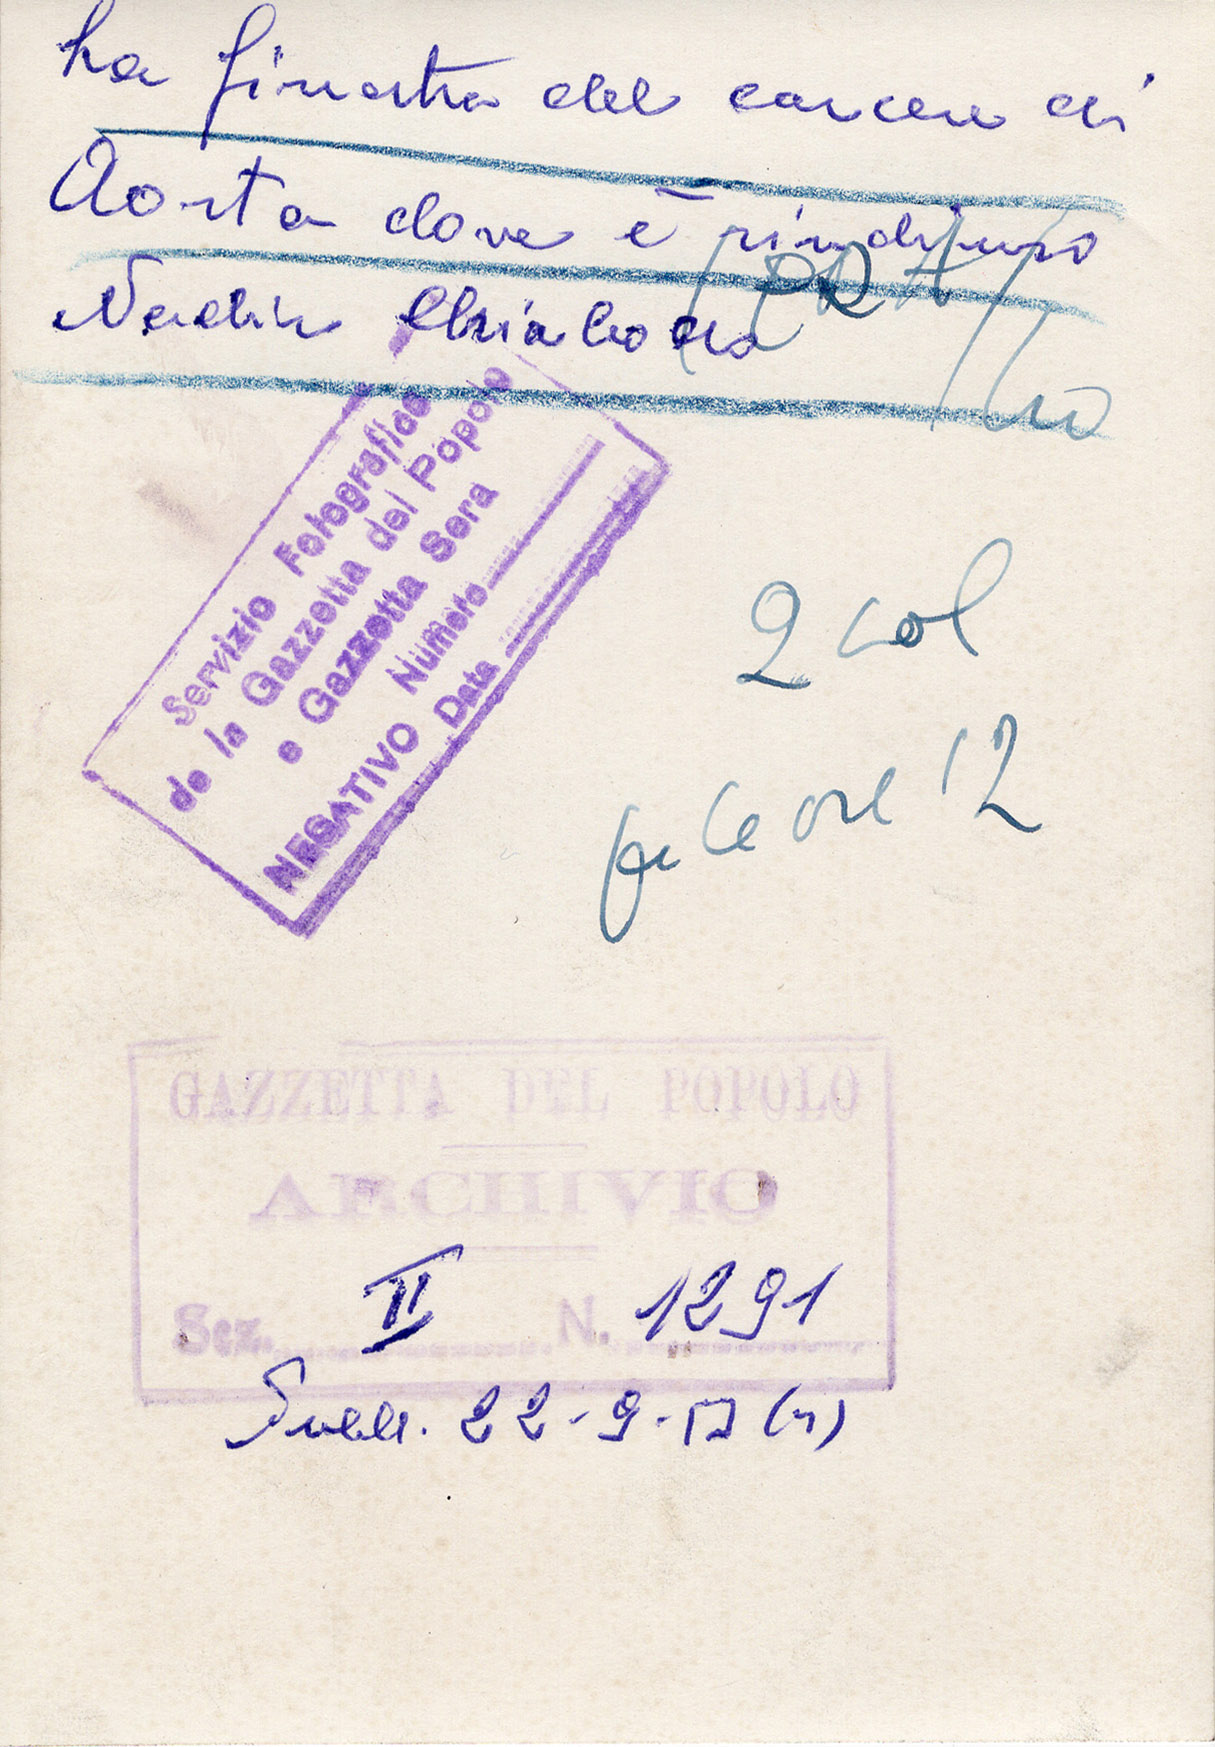 La finestra del carcere di
Aosta dove è rinchiuso
Nadir Chiabodo
2 col
per le ore 12
Servizio Fotografico
de la Gazzetta del Popolo
e Gazzetta Sera
NEGATIVO Numero
Data
GAZZETTA DEL POPOLO
ARCHIVIO
Sez. II N. 1291
Pubbl. 22-9-57 (n)